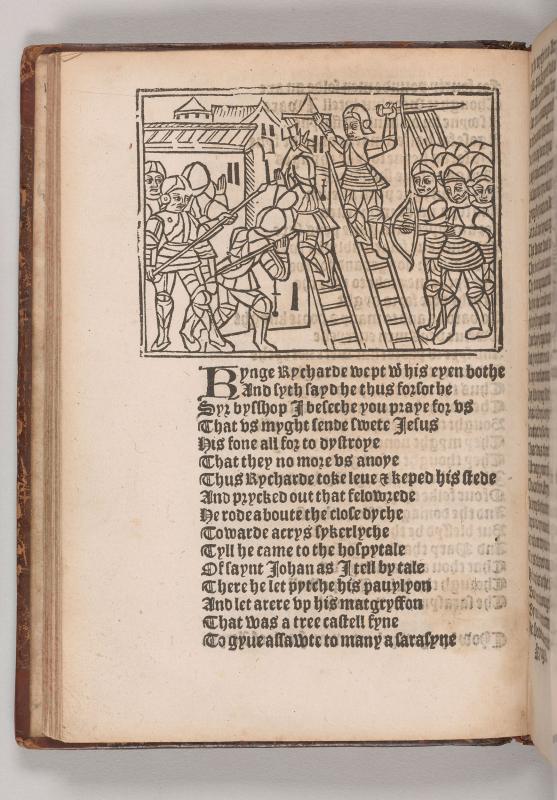 Kynge Rycharde wept wͭ his eyen bothe
And syth sayd he thus forsothe
Syr bysshop I beseche you praye for vs
That vs myght sende swete Jesus
His sone all for to dystroye
That they no more vs anoye
Thus Rycharde toke leue ⁊ keped his stede
And prycked out that felowrede
He rode aboute the close dyche
Towarde acrys sykerlyche
Tyll he came to the hospytale
Of saynt Johan as I tell by tale
There he let pytche his pauylyon
And let arere vp his matgryffon
That was a tree castell fyne
To gyue assawte to many a sarasyne